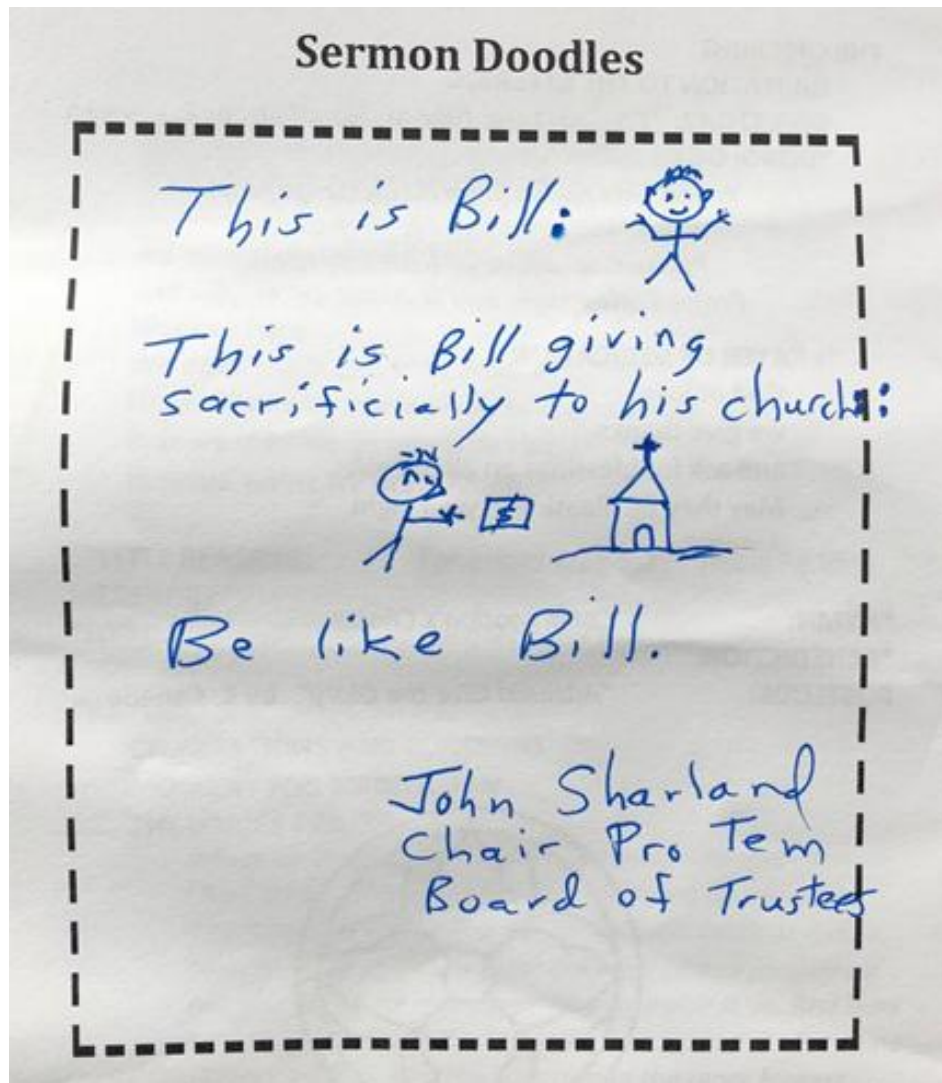 Sermon Doodles
This is Bill:
This is Bill giving
sacrificially to his church:
$
Be like Bill.
John Sharland
Chair Pro Tem
Board of Trustees